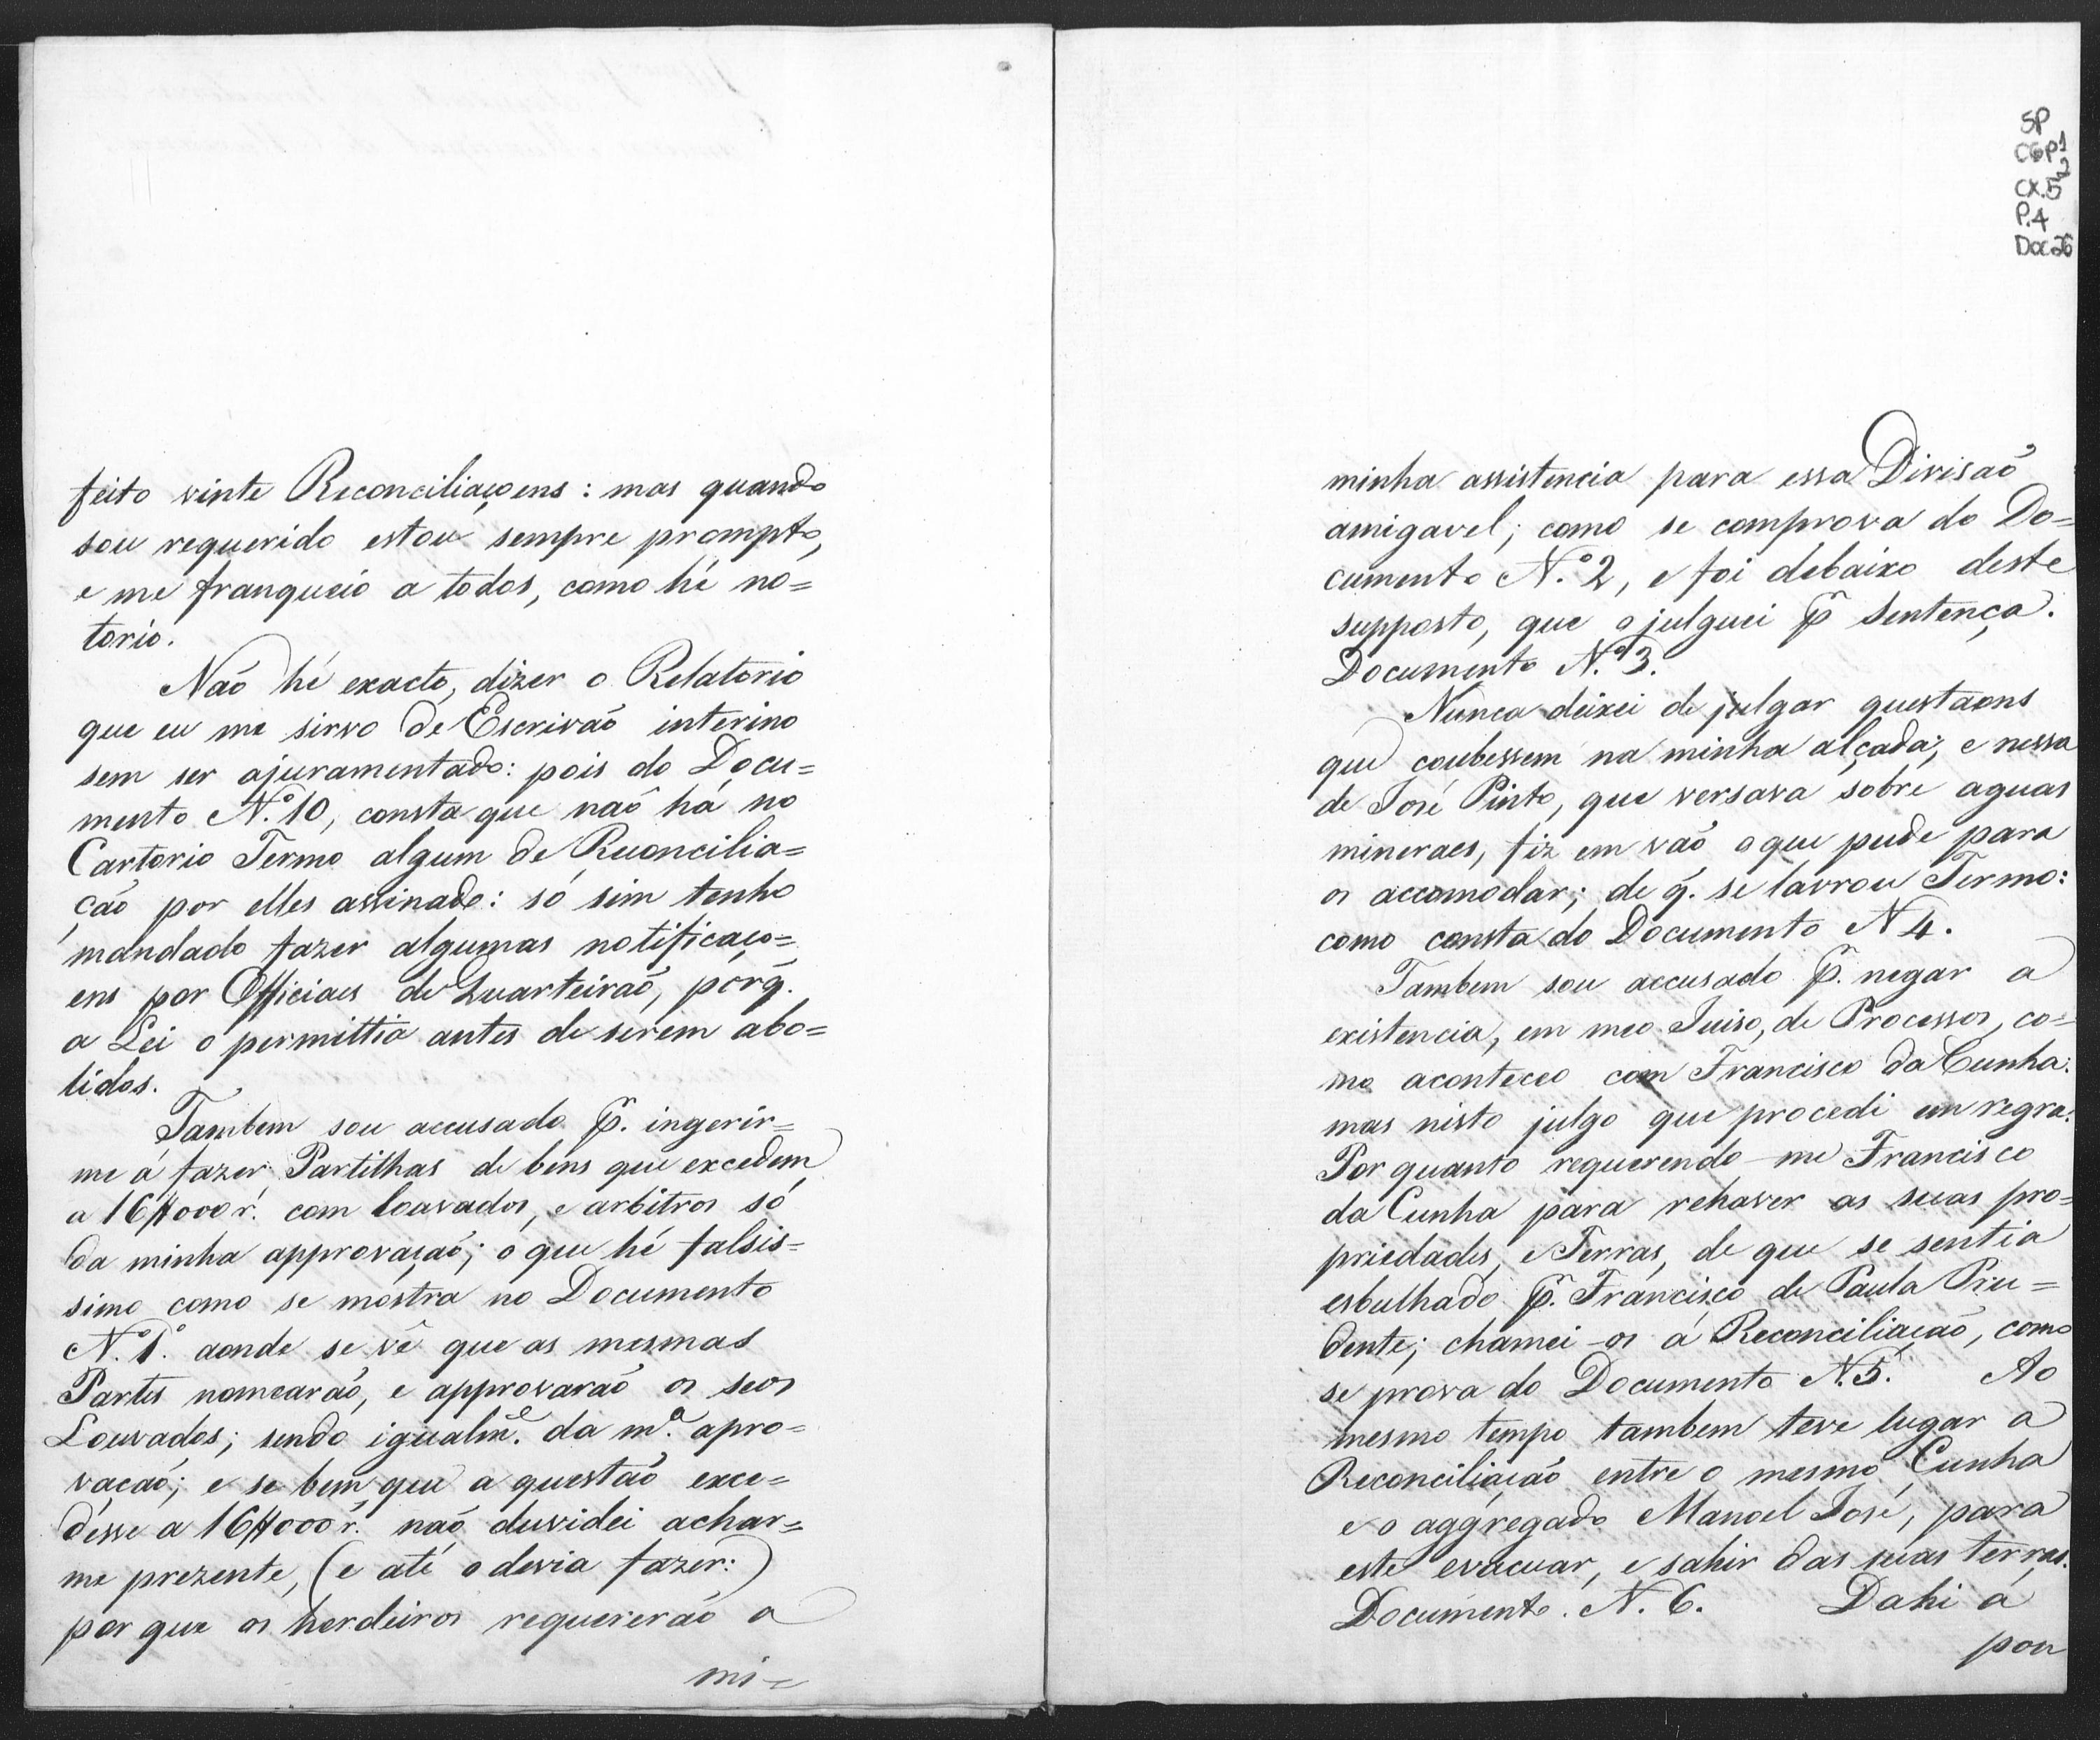 feito vinte Reconciliaçoens : mas quando
sou requerido estou sempre prompto,
e me franqueio a todos, como hé no=
torio.
Naõ hé exacto, dizer o Relatorio
que eu me sirvo de Escrivaõ interino
sem ser ajuramentado: pois do Docu=
mento N.º 10, consta que naõ há no
Cartorio Termo algum de Reconcilia=
çaõ por elles assinado: só sim tenho
mandado fazer algumas notificaço=
ens por Officiaes de Quarteiraõ, porq̃.
a Lei o permittia antes de serem abo=
lidos.
Tambem sou accusado p̃. ingerir=
me á fazer Partilhas de bens que excedem
a 16$000 r.ˢ com louvados, e arbitros só
da minha approvaçaõ; o que hé falsis=
simo como se mostra no Documento
N.º 1.º aonde se vê que as mesmas
Partes nomearaõ, e approvaraõ os seos
Louvados; sendo igualm.ᵉ da m.ª apro=
vaçaõ; e se bem que a questaõ exce=
desse a 16$000 r.ˢ naõ duvidei achar=
me prezente, (e até o devia fazer:)
por que os herdeiros requereraõ a
mi=
SP
CGP1
2
CX.5
P.4
Doc 26
minha assistencia para essa Divisaõ
amigavel; como se comprova do Do=
cumento N.º 2, e foi debaixo deste
supposto, que o julguei p̃ Sentença.
Documento N.º 3.
Nunca deixei de julgar questaons
que coubessem na minha alçada; e nessa
de José Pinto, que versava sobre aguas
mineraes, fiz em vaõ o que pude para
os accomodar; de q̃. se lavrou Termo:
como consta do Documento N 4.
Tambem sou accusado p̃. negar a
existencia, em meo Juiso, de Processos, co=
mo aconteceo com Francisco da Cunha:
mas nisto julgo que procedi em regra.
Por quanto requerendo-me Francisco
da Cunha para rehaver as suas pro=
priedades, e Terras, de que se sentia
esbulhado p̃. Francisco de Paula Pru=
dente; chamei-os á Reconciliaçaõ, como
se prova do Documento N.5. Ao
mesmo tempo tambem teve lugar a
Reconciliaçaõ entre o mesmo Cunha
e o aggregado Manoel José, para
este evacuar, e sahir das suas terras.
Documento. N. 6. Dahi á
pou